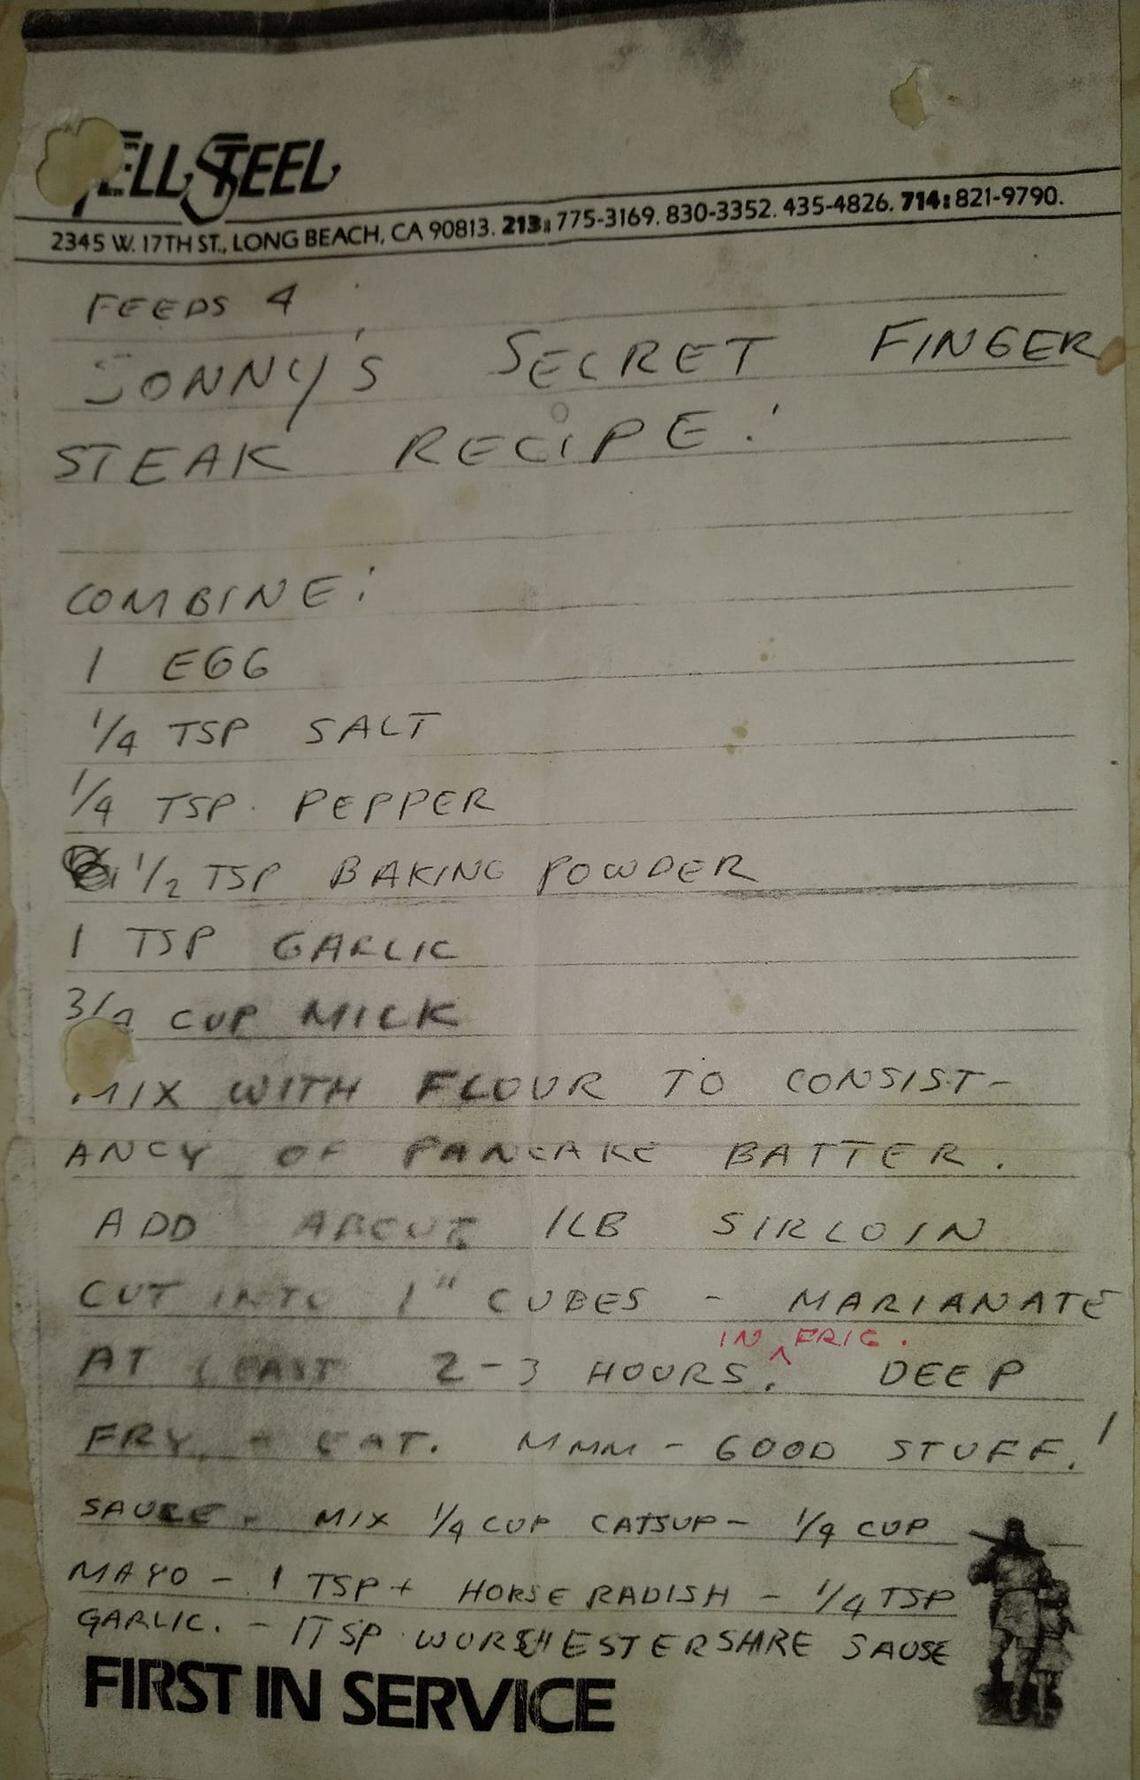 TELL STEEL
2345 W. 17TH ST., LONG BEACH, CA 90813. 213: 775-3169. 830-3352. 435-4826. 714: 821-9790.
FEEDS 4
JONNY'S SECRET FINGER
STEAK RECIPE!
COMBINE:
1 EGG
1/4 TSP SALT
1/4 TSP. PEPPER
1/2 TSP BAKING POWDER
1 TSP GARLIC
3/4 CUP MILK
MIX WITH FLOUR TO CONSIST-
ANCY OF PANCAKE BATTER.
ADD ABOUT 1LB SIRLOIN
CUT INTO 1" CUBES - MARIANATE
IN FRIG.
AT LEAST 2-3 HOURS. DEEP
FRY + EAT. MMM - GOOD STUFF!
SAUCE - MIX 1/4 CUP CATSUP - 1/4 CUP
MAYO - 1 TSP+ HORSE RADISH - 1/4 TSP
GARLIC. - 1TSP WORSHESTERSHIRE SAUSE
FIRST IN SERVICE